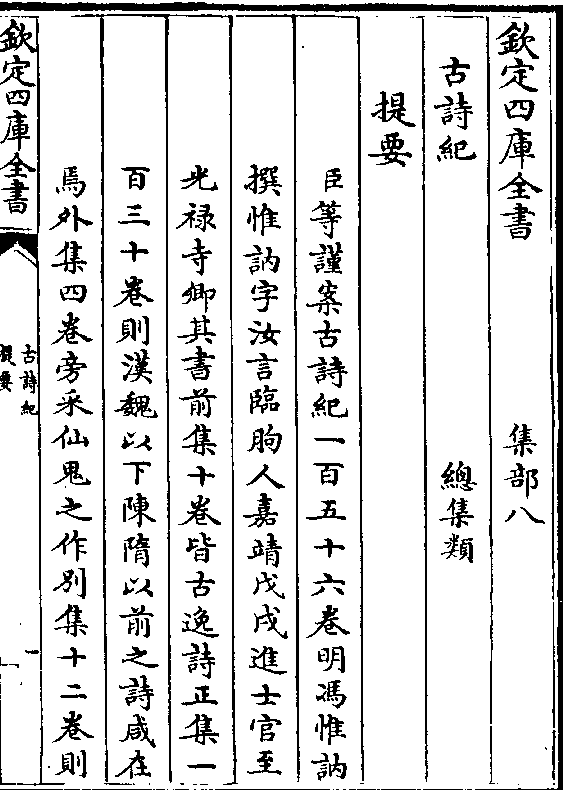 欽定四庫全書　集部八
古詩紀　總集類
提要
臣等謹案古詩紀一百五十六卷明馮惟訥
撰惟訥字汝言臨朐人嘉靖戊戌進士官至
光禄寺卿其書前集十卷皆古逸詩正集一
百三十卷則漢魏以下陳隋以前之詩咸在
焉外集四卷旁采仙鬼之作别集十二卷則
欽定四庫全書
古詩紀
提要
一